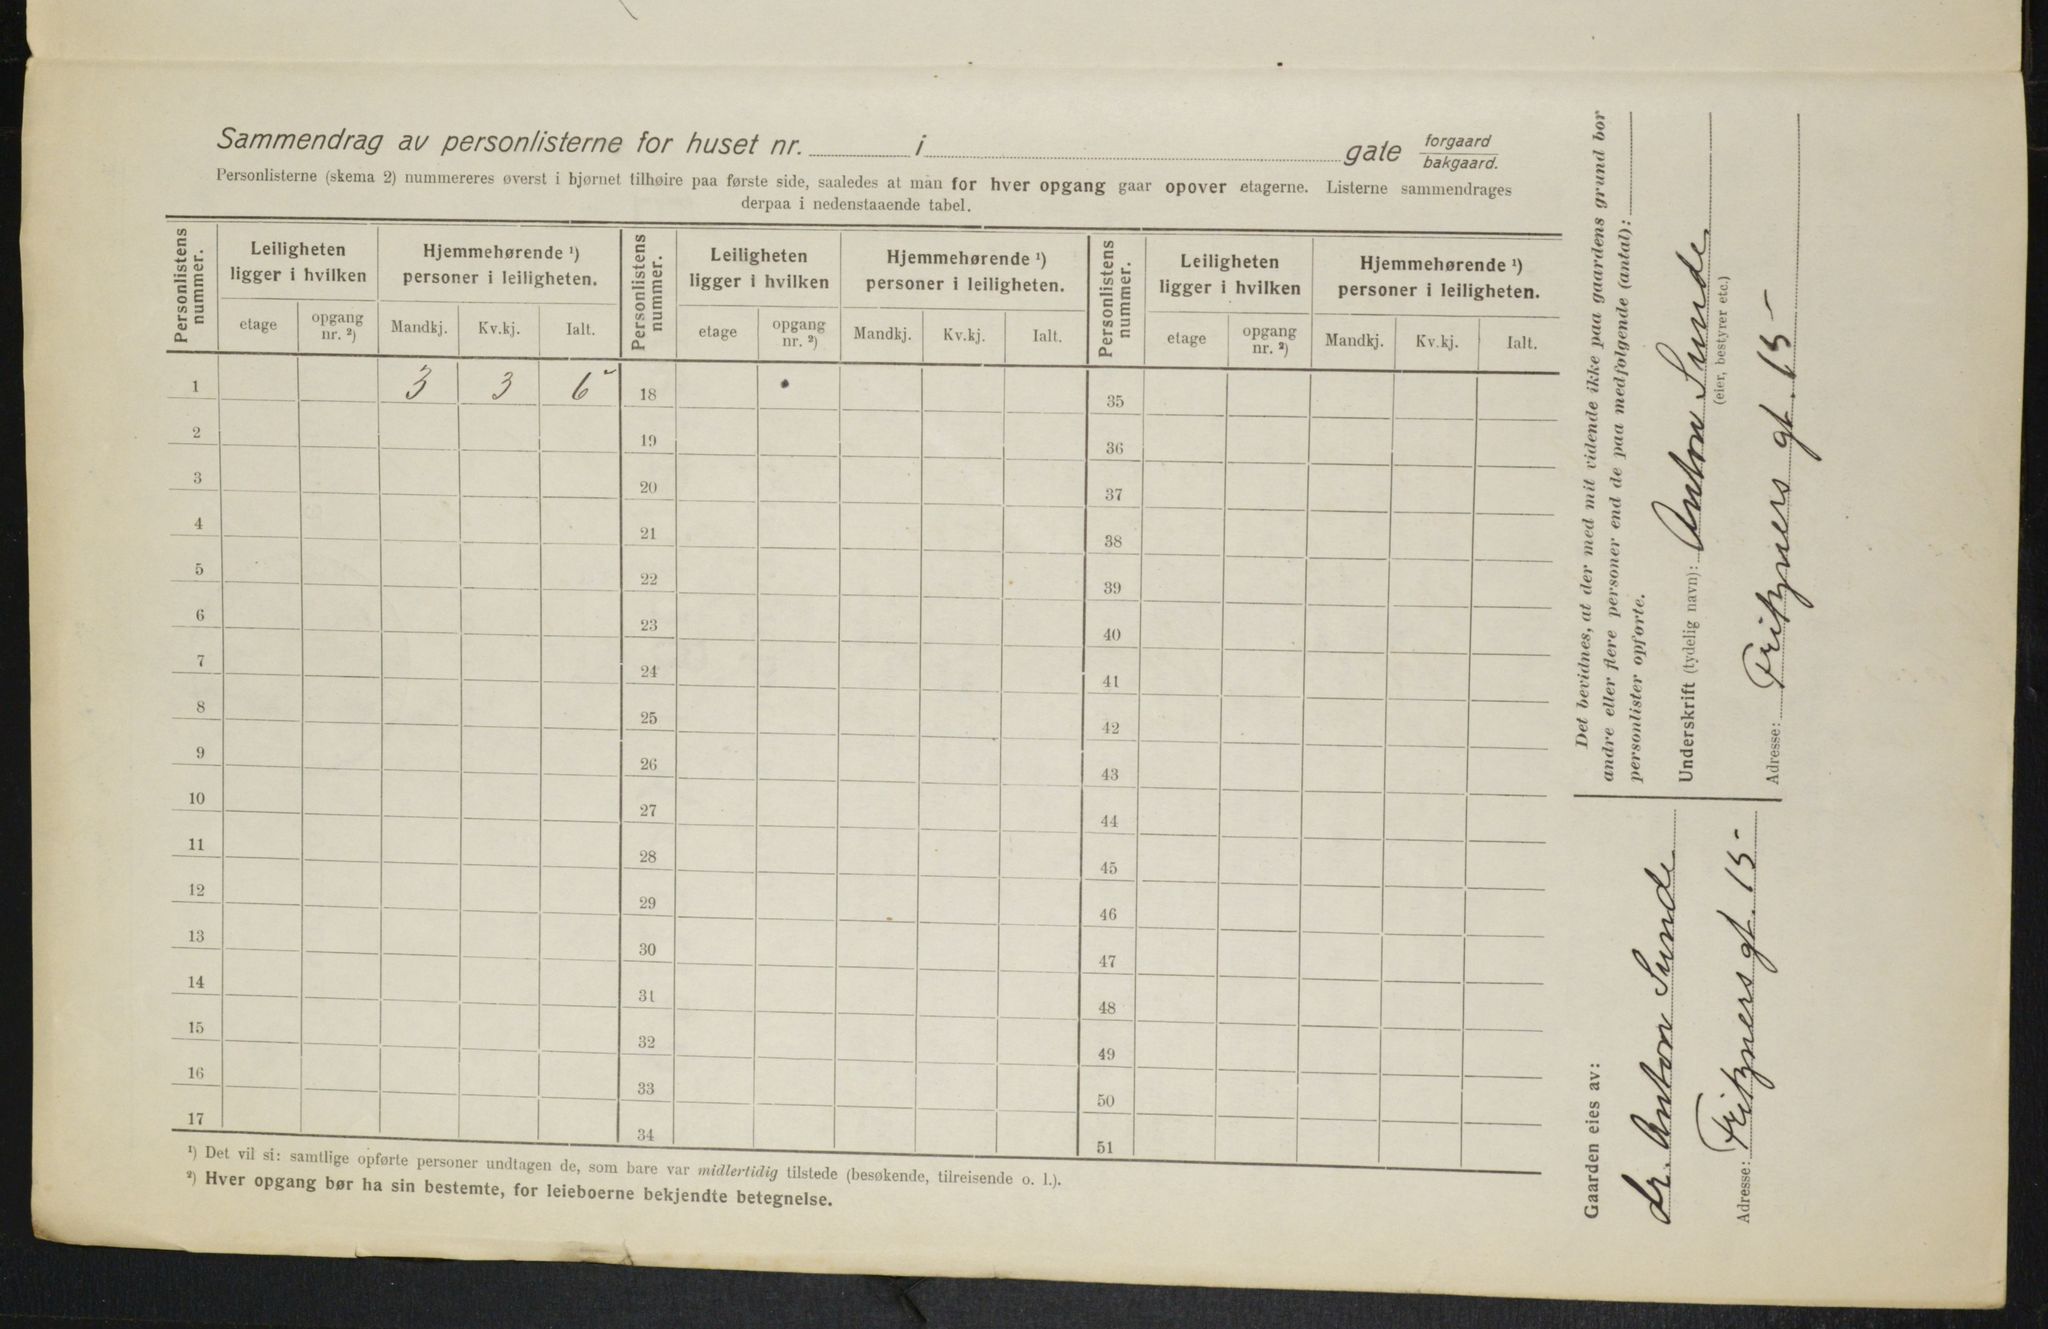 Sammendrag av personlisterne for huset nr. i gate forgaard
bakgaard.
Personlisterne (skema 2) nummereres øverst i hjørnet tilhøire paa første side, saaledes at man for hver opgang gaar opover etagerne. Listerne sammendrages
derpaa i nedenstaaende tabel.
Personlistens nummer. Leiligheten ligger i hvilken Hjemmehørende ¹) personer i leiligheten. Personlistens nummer. Leiligheten ligger i hvilken Hjemmehørende ¹) personer i leiligheten. Personlistens nummer. Leiligheten ligger i hvilken Hjemmehørende ¹) personer i leiligheten.
etage opgang nr. ²) Mandkj. Kv.kj. Ialt. etage opgang nr. ²) Mandkj. Kv.kj. Ialt. etage opgang nr. ²) Mandkj. Kv.kj. Ialt.
1 3 3 6 18 35
2 19 36
3 20 37
4 21 38
5 22 39
6 23 40
7 24 41
8 25 42
9 26 43
10 27 44
11 28 45
12 29 46
13 30 47
14 31 48
15 32 49
16 33 50
17 34 51
¹) Det vil si: samtlige opførte personer undtagen de, som bare var midlertidig tilstede (besøkende, tilreisende o. l.).
²) Hver opgang bør ha sin bestemte, for leieboerne bekjendte betegnelse.
Det bevidnes, at der med mit vidende ikke paa gaardens grund bor
andre eller flere personer end de paa medfølgende (antal):
personlister opførte.
Underskrift (tydelig navn): Anton Sunde
(eier, bestyrer etc.)
Adresse: Fritzners gt. 15
Gaarden eies av:
dr. Anton Sunde
Adresse: Fritzners gt. 15